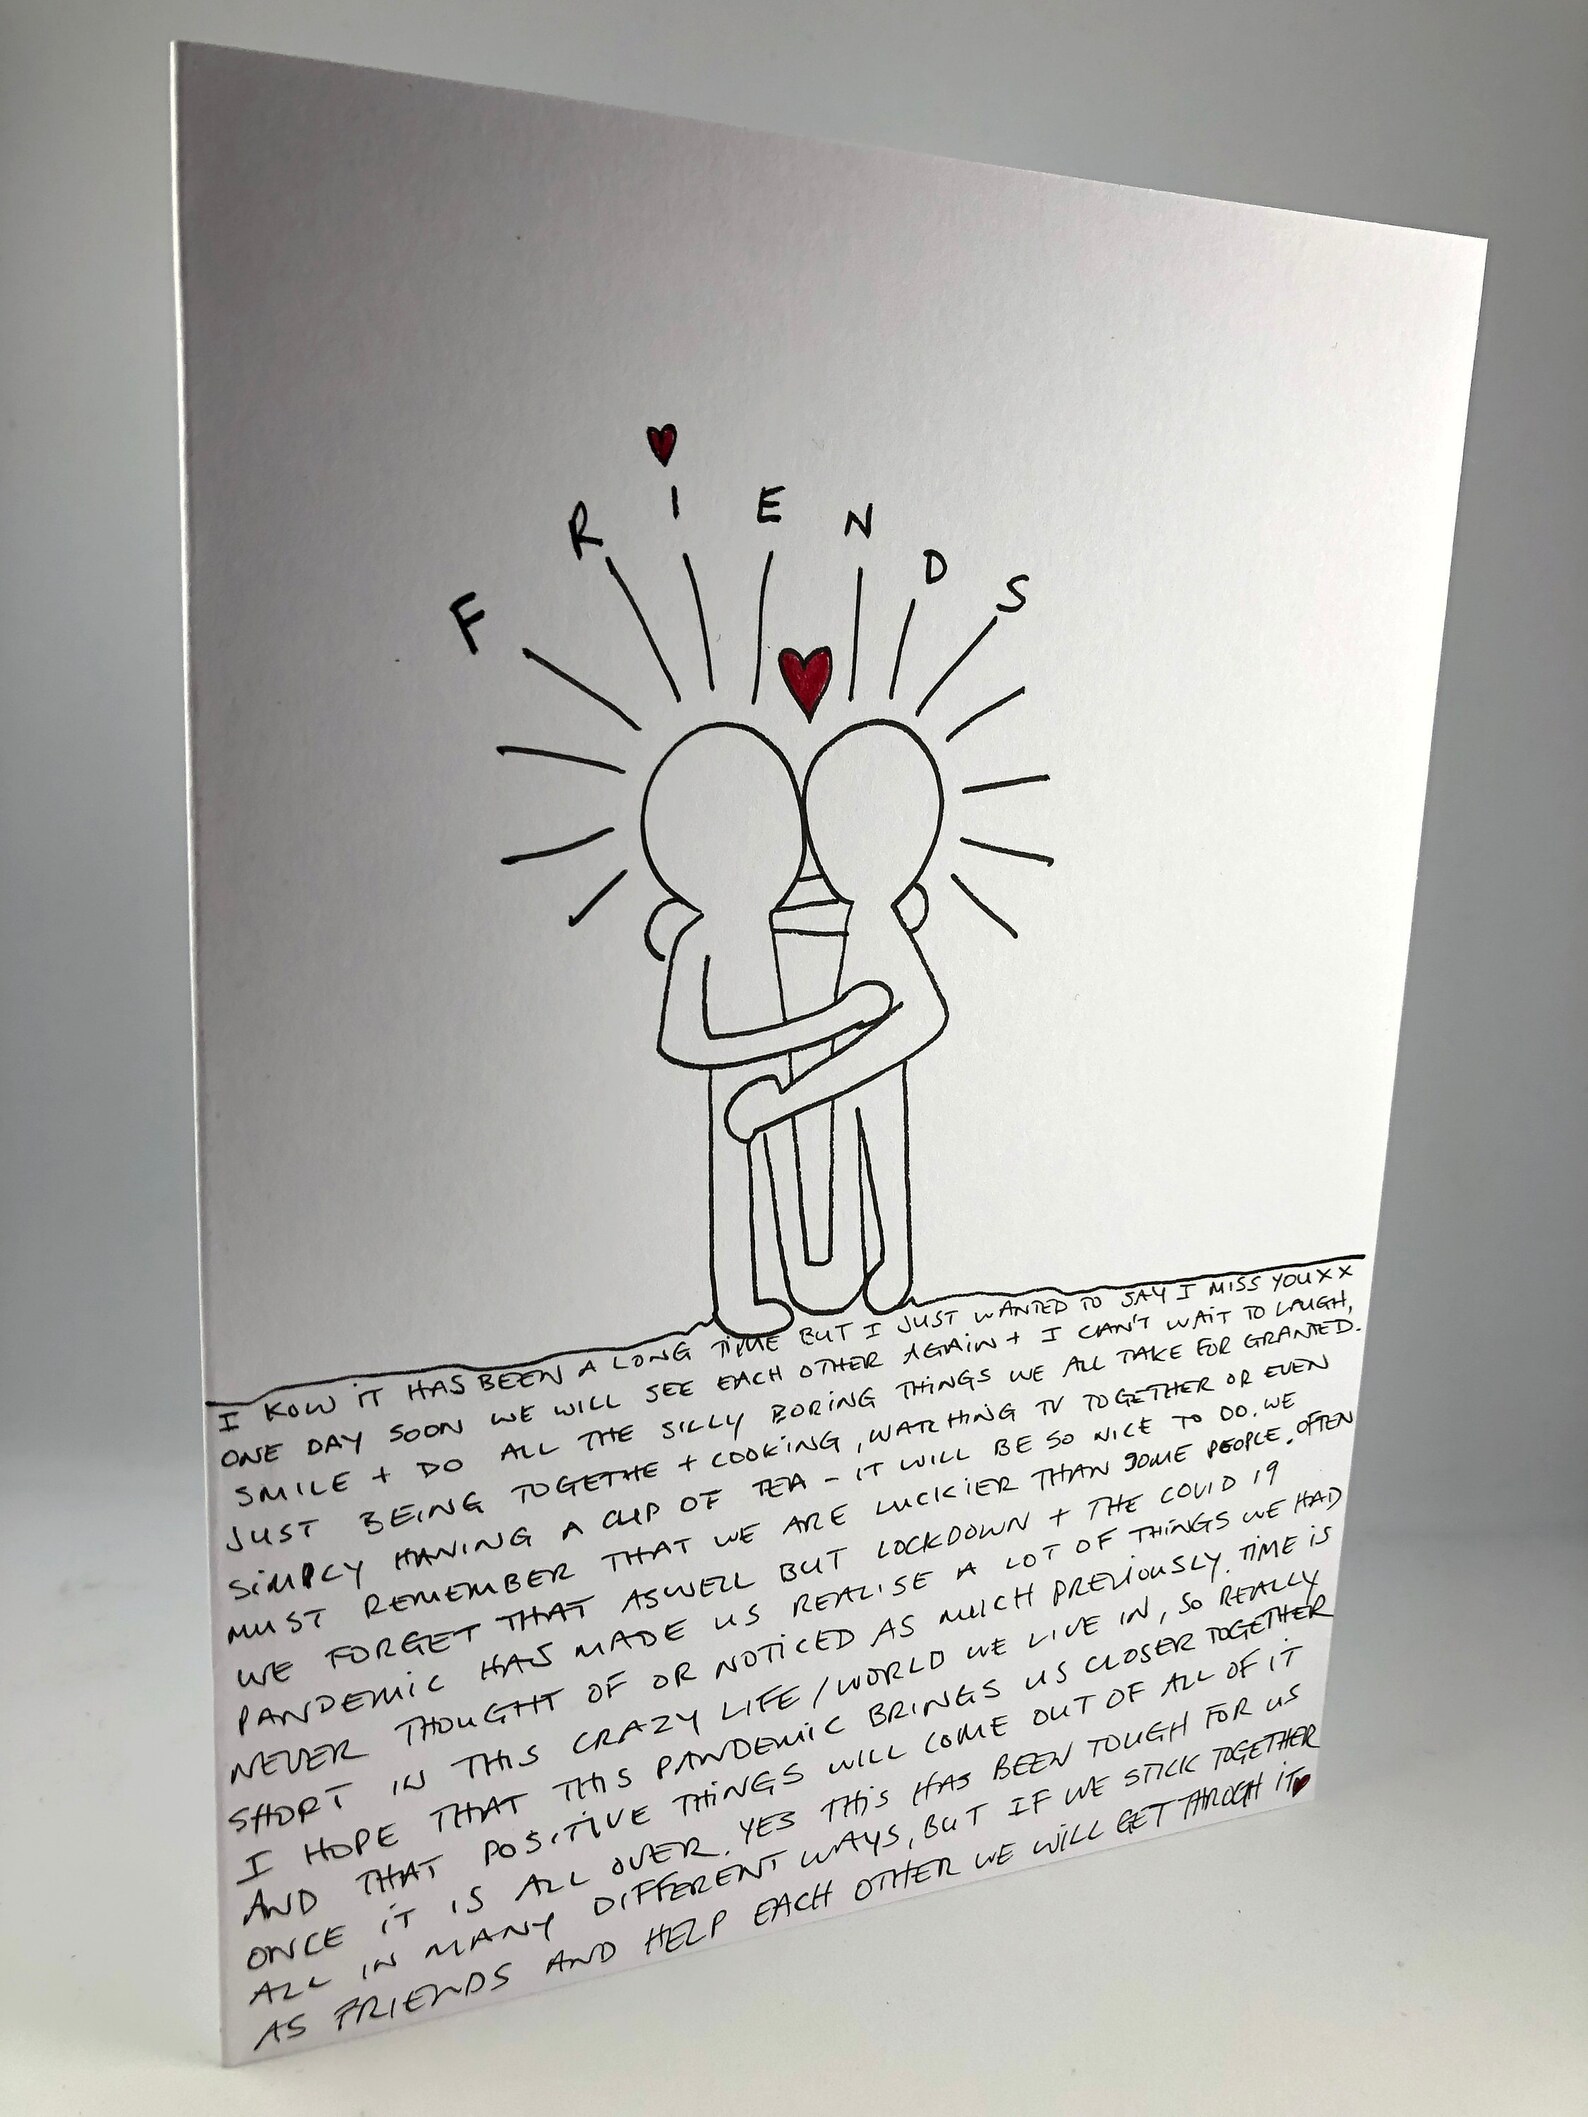 FRIENDS
I KOW IT HAS BEEN A LONG TIME BUT I JUST WANTED TO SAY I MISS YOU X X
ONE DAY SOON WE WILL SEE EACH OTHER AGAIN + I CAN'T WAIT TO LAUGH,
SMILE + DO ALL THE SILLY BORING THINGS WE ALL TAKE FOR GRANTED.
JUST BEING TOGETHE + COOKING, WATCHING TV TOGETHER OR EVEN
SIMPLY HAVING A CUP OF TEA - IT WILL BE SO NICE TO DO. WE
MUST REMEMBER THAT WE ARE LUCKIER THAN SOME PEOPLE. OFTEN
WE FORGET THAT ASWELL BUT LOCKDOWN + THE COVID 19
PANDEMIC HAS MADE US REALISE A LOT OF THINGS WE HAD
NEVER THOUGHT OF OR NOTICED AS MUCH PREVIOUSLY. TIME IS
SHORT IN THIS CRAZY LIFE/WORLD WE LIVE IN, SO REALLY
I HOPE THAT THIS PANDEMIC BRINGS US CLOSER TOGETHER
AND THAT POSITIVE THINGS WILL COME OUT OF ALL OF IT
ONCE IT IS ALL OVER. YES THIS HAS BEEN TOUGH FOR US
ALL IN MANY DIFFERENT WAYS, BUT IF WE STICK TOGETHER
AS FRIENDS AND HELP EACH OTHER WE WILL GET THROGH IT